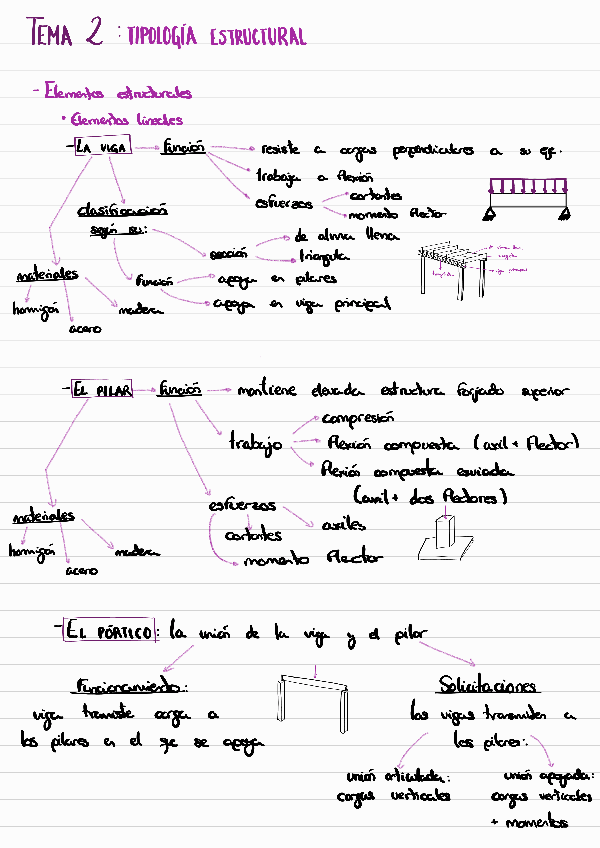 TEMA 2: TIPOLOGÍA ESTRUCTURAL
- Elementos estructurales
• Elementos lineales
- LA VIGA
Función
resiste a cargas perpendiculares a su eje.
trabaja a flexión
esfuerzos
cortantes
momento flector
clasificación
según su:
sección
de alma llena
triangula
Función
apoya en pilares
apoya en viga principal
materiales
hormigón
acero
madera
- EL PILAR
Función
mantiene elevada estructura forjado superior
trabajo
compresión
flexión compuesta (axil + flector)
flexión compuesta esviada
(axil + dos flectores)
esfuerzos
axiles
cortantes
momento flector
materiales
hormigón
acero
madera
- EL PÓRTICO: la unión de la viga y el pilar
Funcionamiento:
viga transmite carga a
los pilares en el que se apoya
Solicitaciones
las vigas transmiten a
los pilares:
unión articulada:
cargas verticales
unión apoyada:
cargas verticales
+ momentos